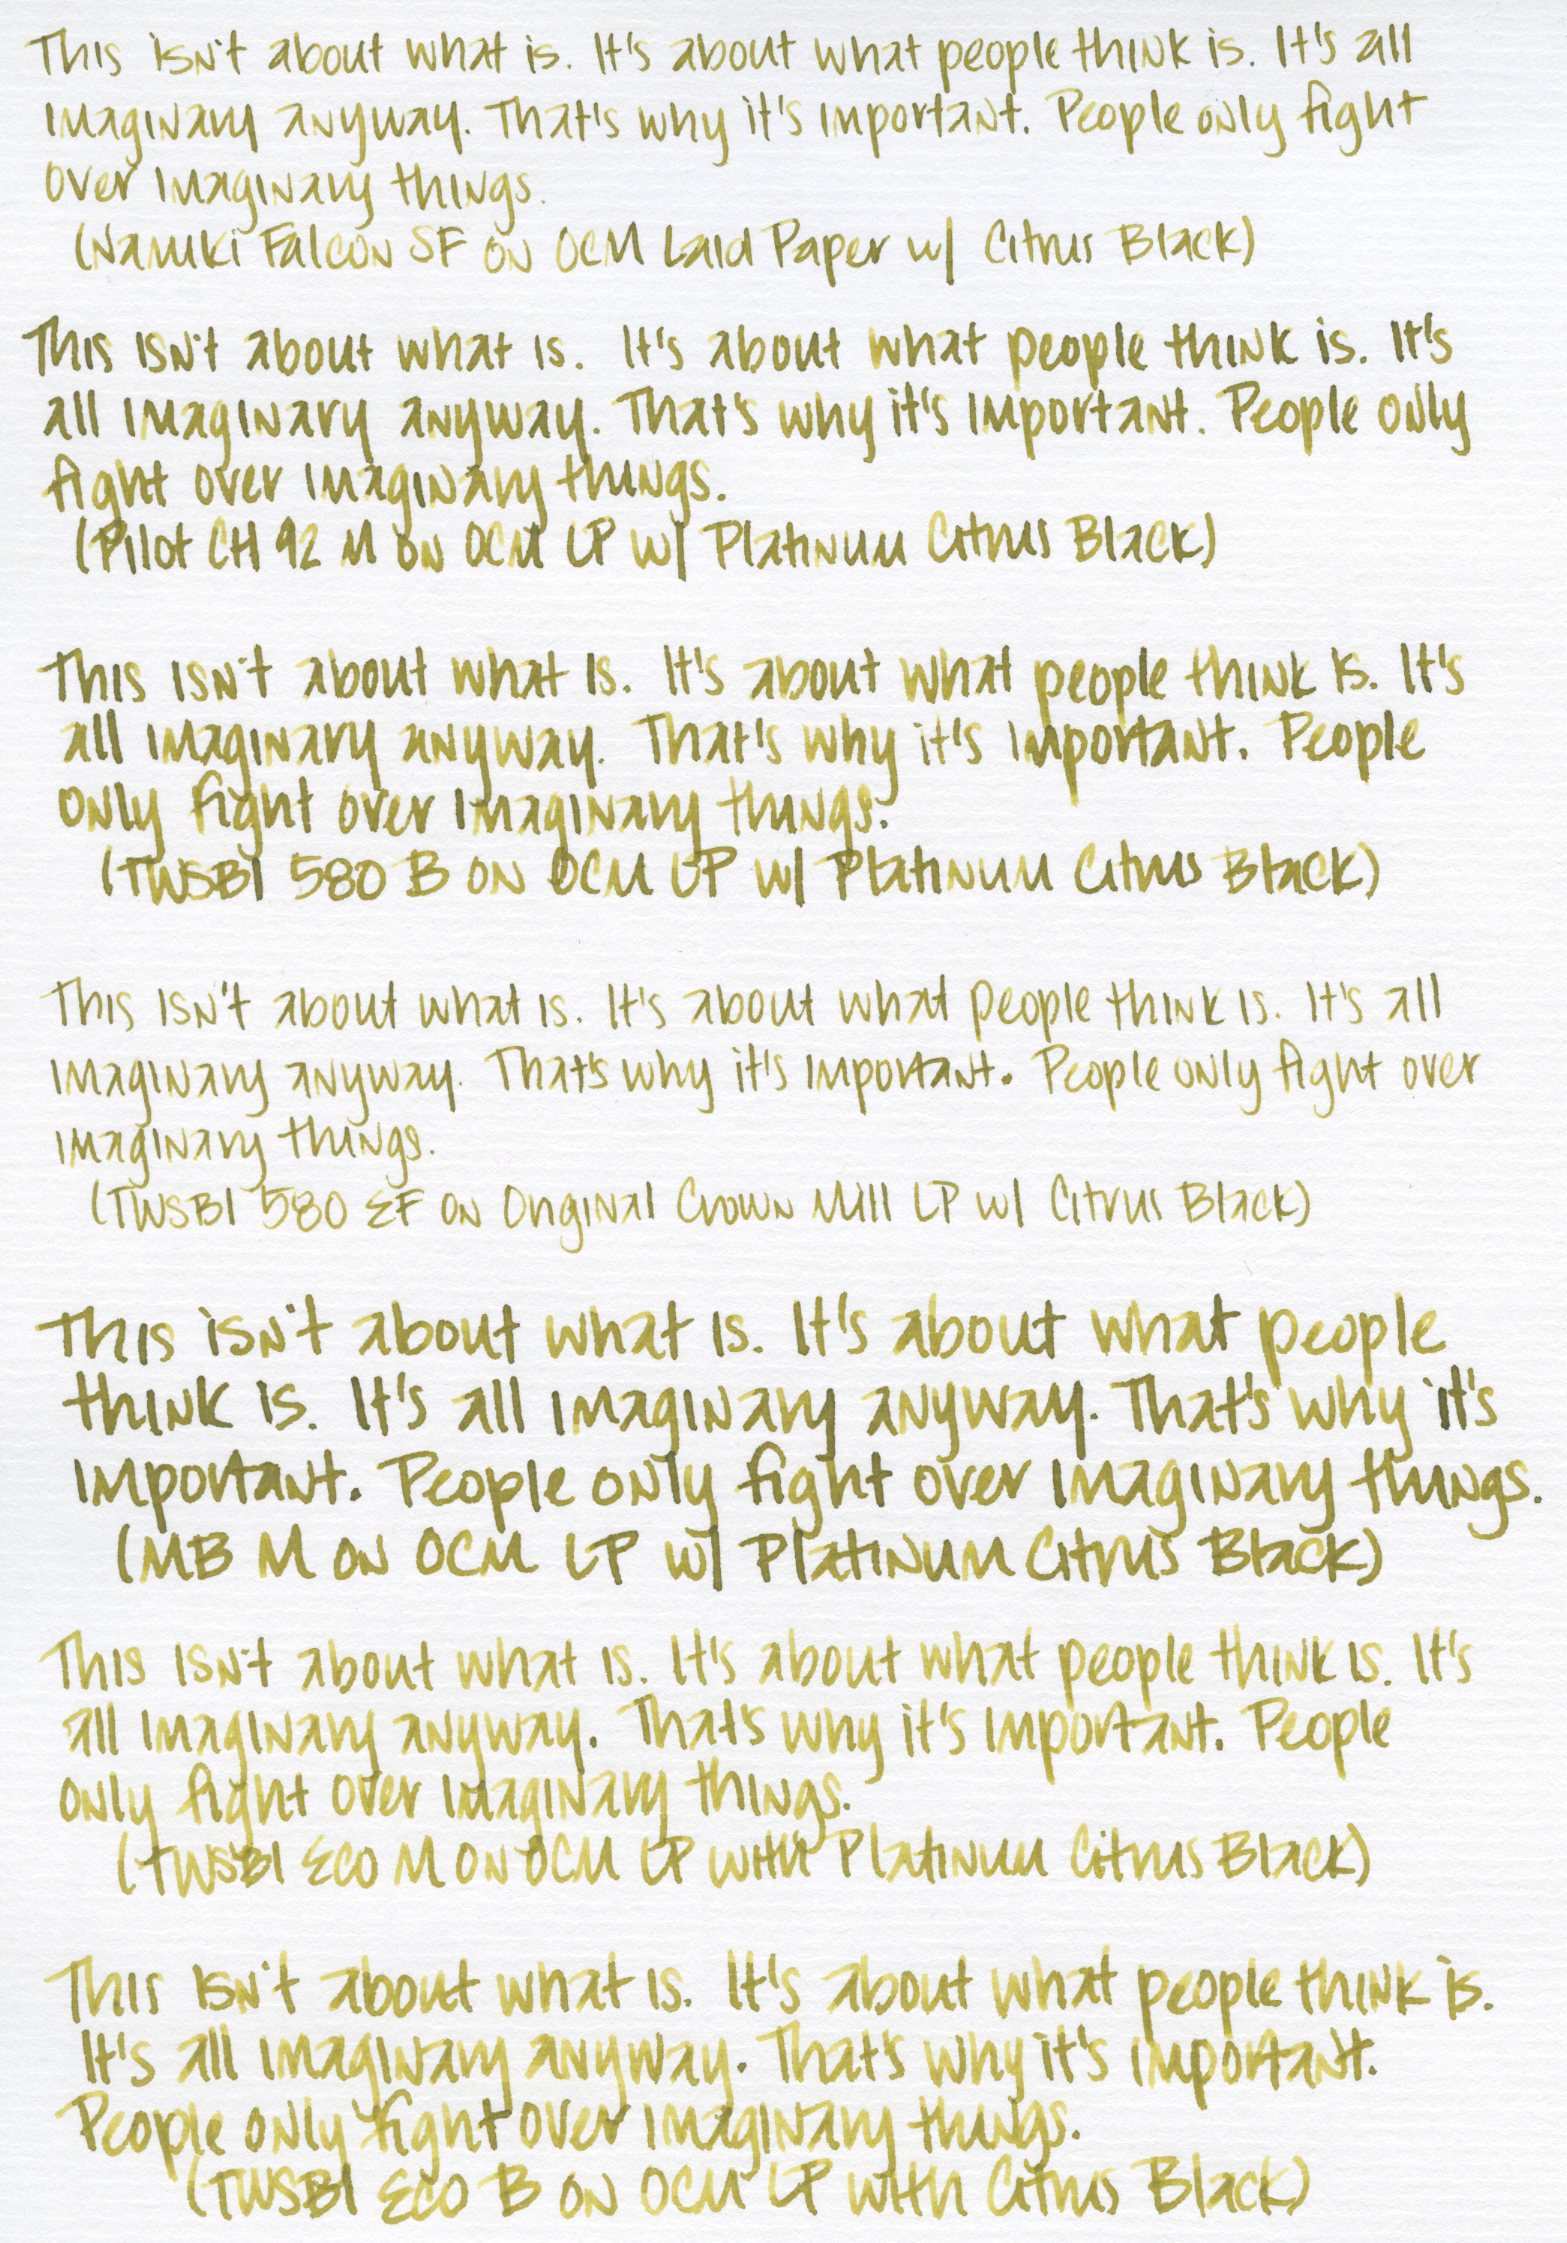 This isn't about what is. It's about what people think is. It's all
imaginary anyway. That's why it's important. People only fight
over imaginary things.
(Namiki Falcon SF on OCM Laid Paper w/ Citrus Black)
This isn't about what is. It's about what people think is. It's
all imaginary anyway. That's why it's important. People only
fight over imaginary things.
(Pilot CH 92 M on OCM LP w/ Platinum Citrus Black)
This isn't about what is. It's about what people think is. It's
all imaginary anyway. That's why it's important. People
only fight over imaginary things.
(TWSBI 580 B on OCM LP w/ Platinum Citrus Black)
This isn't about what is. It's about what people think is. It's all
imaginary anyway. That's why it's important. People only fight over
imaginary things.
(TWSBI 580 EF on Original Crown Mill LP w/ Citrus Black)
This isn't about what is. It's about what people
think is. It's all imaginary anyway. That's why it's
important. People only fight over imaginary things.
(MB M on OCM LP w/ Platinum Citrus Black)
This isn't about what is. It's about what people think is. It's
all imaginary anyway. That's why it's important. People
only fight over imaginary things.
(TWSBI ECO M on OCM LP with Platinum Citrus Black)
This isn't about what is. It's about what people think is.
It's all imaginary anyway. That's why it's important.
People only fight over imaginary things.
(TWSBI ECO B on OCM LP with Citrus Black)